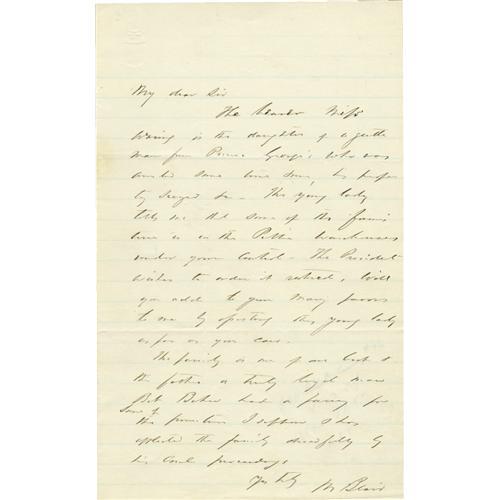 My dear Sir
The bearer Miss
Waring is the daughter of a gentle
man from Prince George's who was
arrested some time since, his proper
ty seized &c. The young lady
tells me that some of the furni
ture is in the Public Warehouses
under your Control. The President
wishes to order it restored. Will
you add to your many favors
to me by assisting this young lady
as far as you can.
The family is one of our best &
the father a truly loyal man
Bob Baker had a fancy for
Some of
the furniture I suppose & has
the family dreadfully by
his proceedings
Yrs truly
M Blair